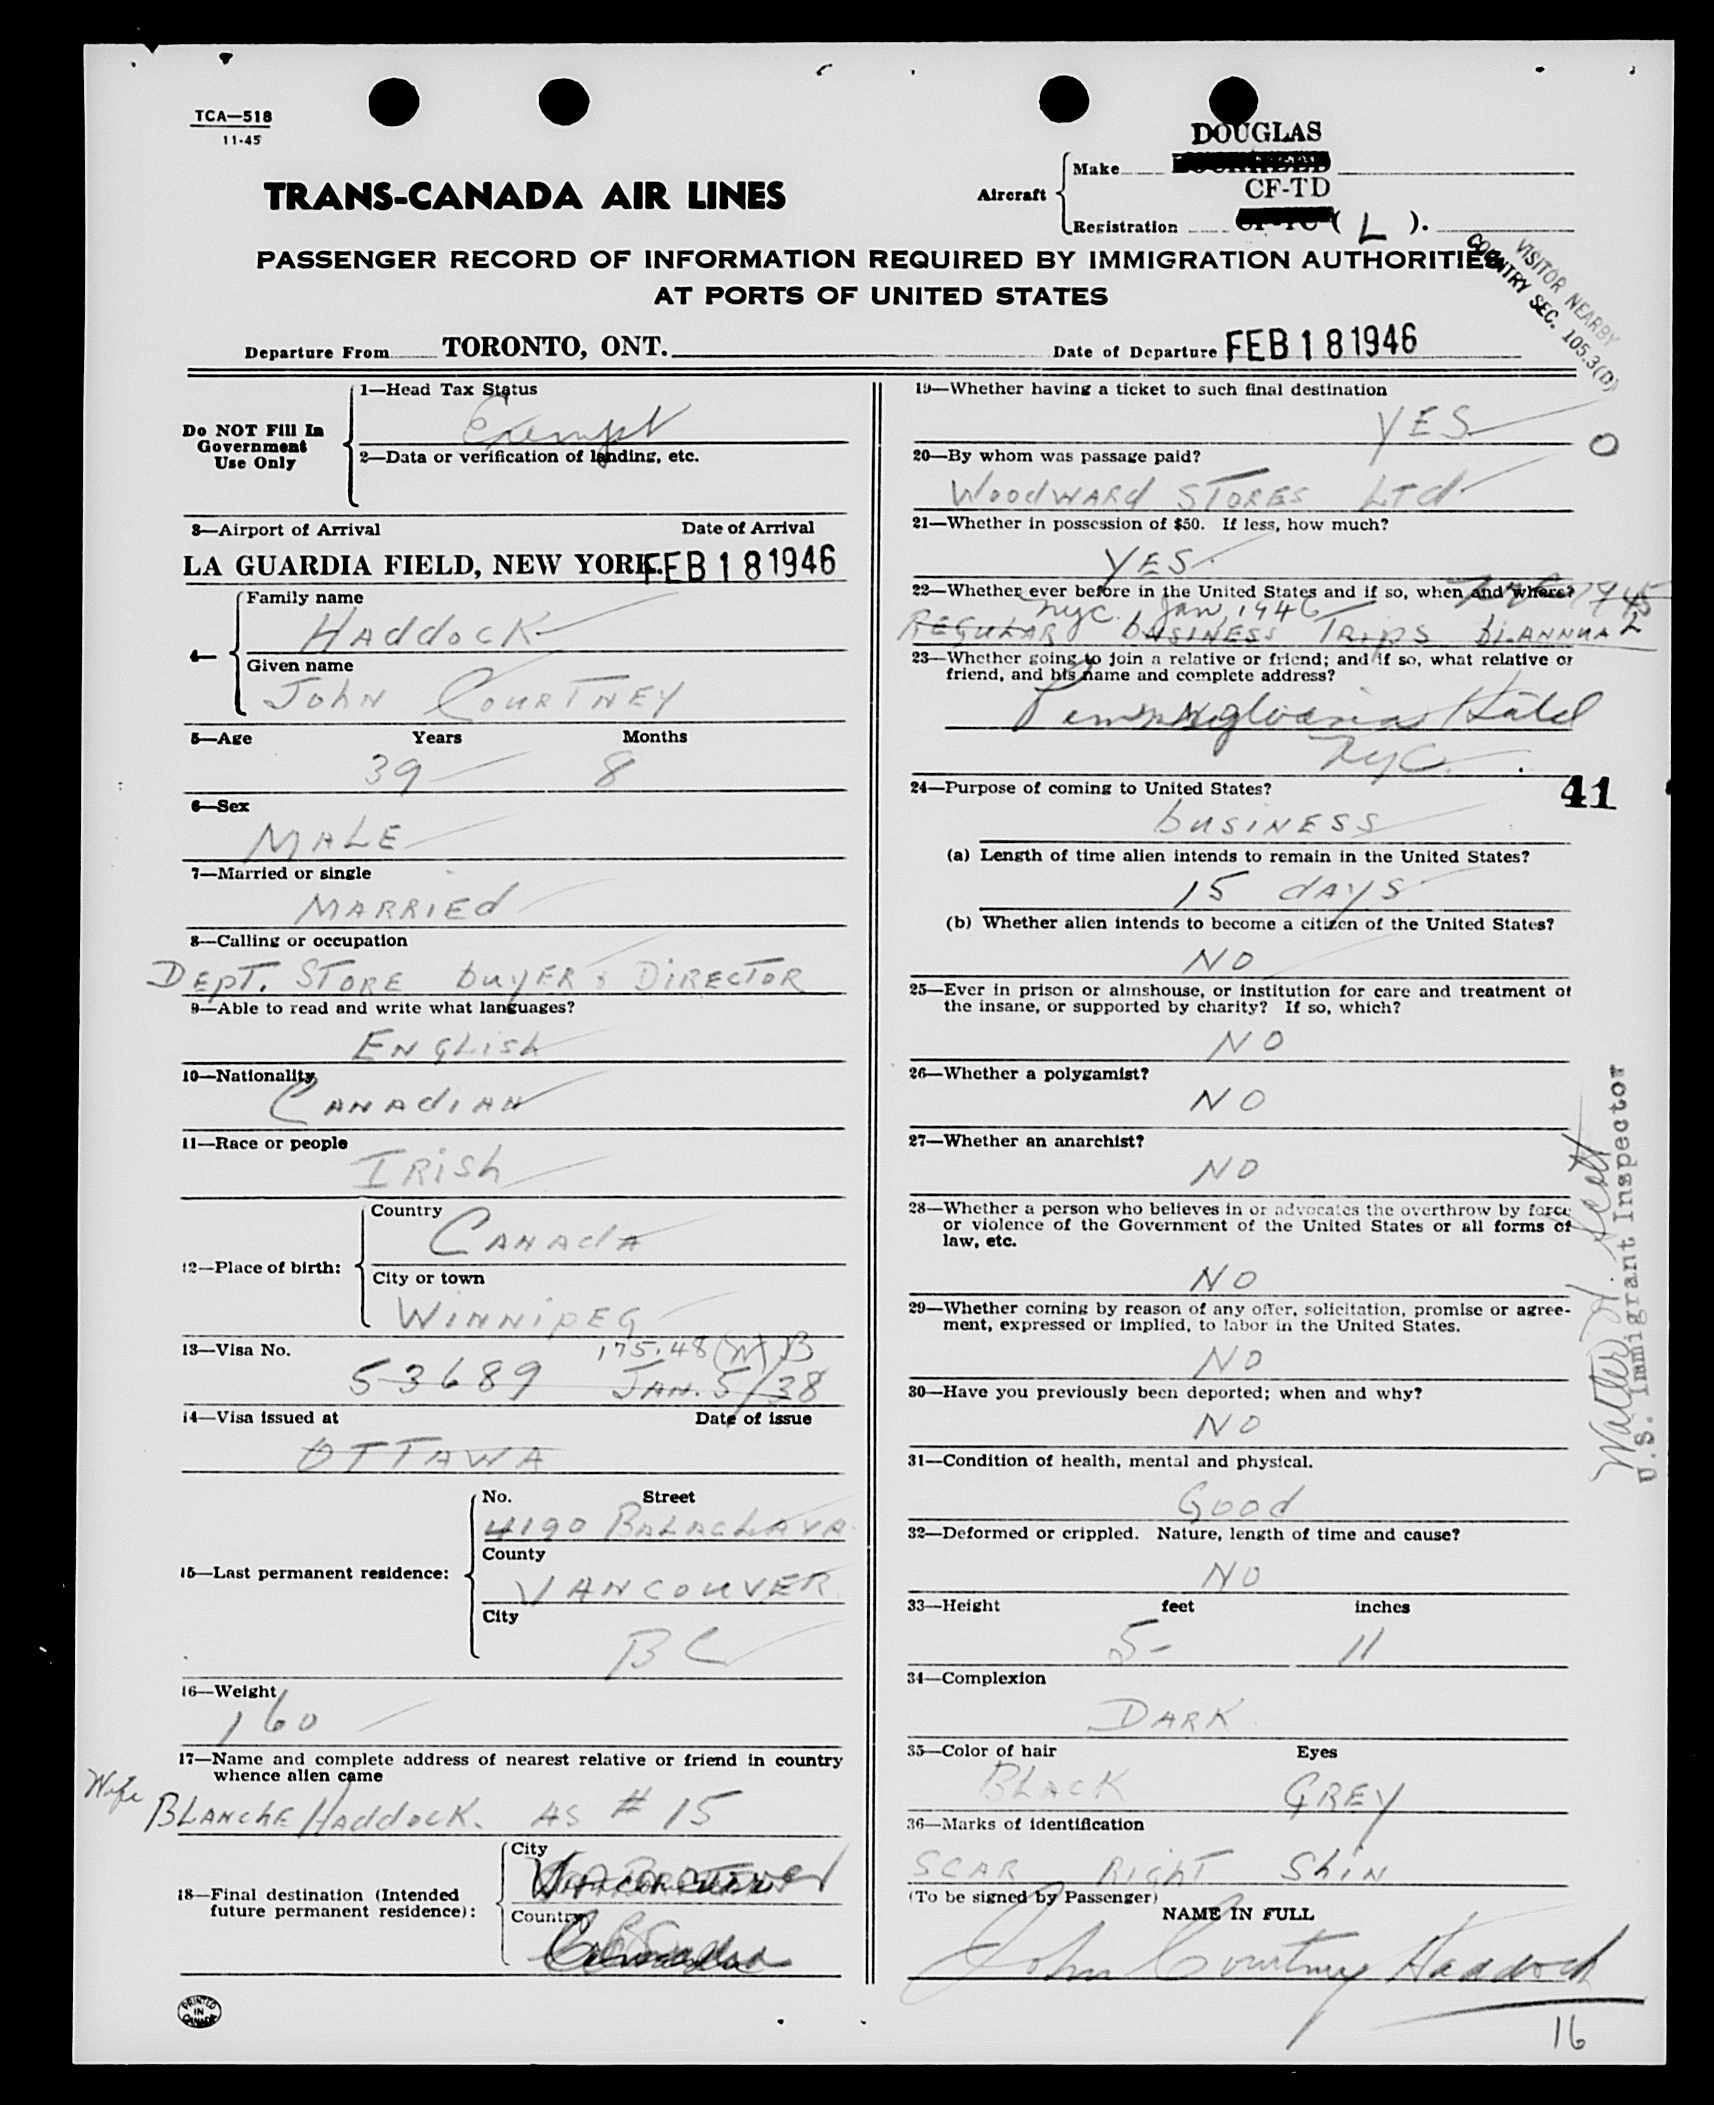 TCA—518
11-45
DOUGLAS
Aircraft
Make
CF-TD
Registration ( L ).
TRANS-CANADA AIR LINES
PASSENGER RECORD OF INFORMATION REQUIRED BY IMMIGRATION AUTHORITIES
AT PORTS OF UNITED STATES
VISITOR NEARBY
COUNTRY SEC. 105.3(D)
Departure From TORONTO, ONT. Date of Departure FEB 18 1946
Do NOT Fill In
Government
Use Only
1—Head Tax Status
Exempt
2—Data or verification of landing, etc.
3—Airport of Arrival Date of Arrival
LA GUARDIA FIELD, NEW YORK. FEB 18 1946
4—
Family name
HAddOCK
Given name
JOhN COURTNEY
5—Age Years Months
39 8
6—Sex
MALE
7—Married or single
MARRIEd
8—Calling or occupation
DEPT. STORE buyER & DIRECTOR
9—Able to read and write what languages?
ENGLish
10—Nationality
CANAdIAN
11—Race or people
IRiSh
12—Place of birth:
Country
CANAdA
City or town
WINNiPEG
13—Visa No.
175.48 (W) B
53689 JAN. 5/38
14—Visa issued at Date of issue
OTTAWA
15—Last permanent residence:
No. Street
4190 BALACLAVA
County
VANCOUVER
City
BC
16—Weight
160
17—Name and complete address of nearest relative or friend in country
whence alien came
Wife
BLANCHE HAddOCK. AS # 15
18—Final destination (Intended
future permanent residence):
City
Vancouver
Country
Canada
PRINTED
IN
CANADA
19—Whether having a ticket to such final destination
YES
O
20—By whom was passage paid?
WoodWARd STORES LTd
21—Whether in possession of $50. If less, how much?
YES
22—Whether ever before in the United States and if so, when and where?
1945
nyc. Jan, 1946
REGULAR bUSINESS TRIPS bi-ANNUAL
23—Whether going to join a relative or friend; and if so, what relative or
friend, and his name and complete address?
Pennsylvania Hotel
NYC.
41
24—Purpose of coming to United States?
bUSINESS
(a) Length of time alien intends to remain in the United States?
15 dAYS
(b) Whether alien intends to become a citizen of the United States?
NO
25—Ever in prison or almshouse, or institution for care and treatment of
the insane, or supported by charity? If so, which?
NO
26—Whether a polygamist?
NO
27—Whether an anarchist?
NO
28—Whether a person who believes in or advocates the overthrow by force
or violence of the Government of the United States or all forms of
law, etc.
NO
29—Whether coming by reason of any offer, solicitation, promise or agree-
ment, expressed or implied, to labor in the United States.
NO
30—Have you previously been deported; when and why?
NO
31—Condition of health, mental and physical.
Good
32—Deformed or crippled. Nature, length of time and cause?
NO
33—Height feet inches
5- 11
34—Complexion
DARK
35—Color of hair Eyes
BLACK GREY
36—Marks of identification
SCAR RIGHT ShIN
(To be signed by Passenger)
NAME IN FULL
John Courtney Haddock
16
Walter H. Scott
U.S. Immigrant Inspector